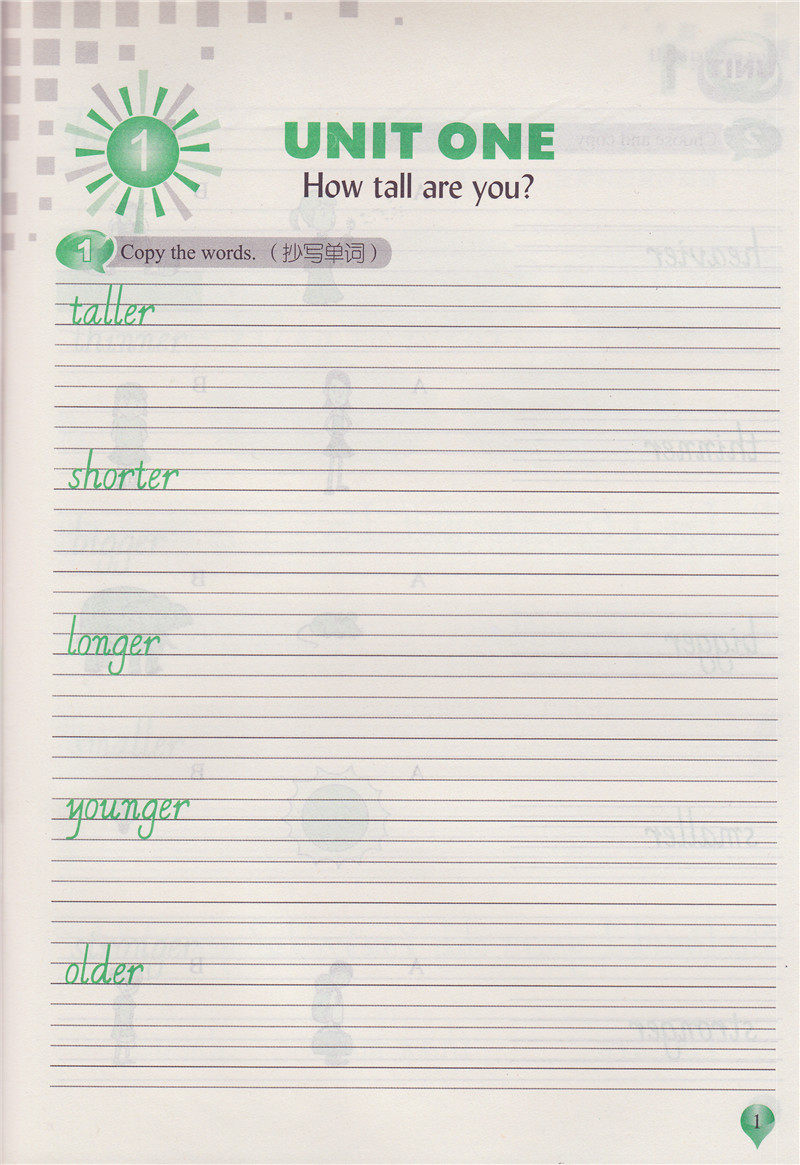 1
UNIT ONE
How tall are you?
1 Copy the words.（抄写单词）
taller
shorter
longer
younger
older
1